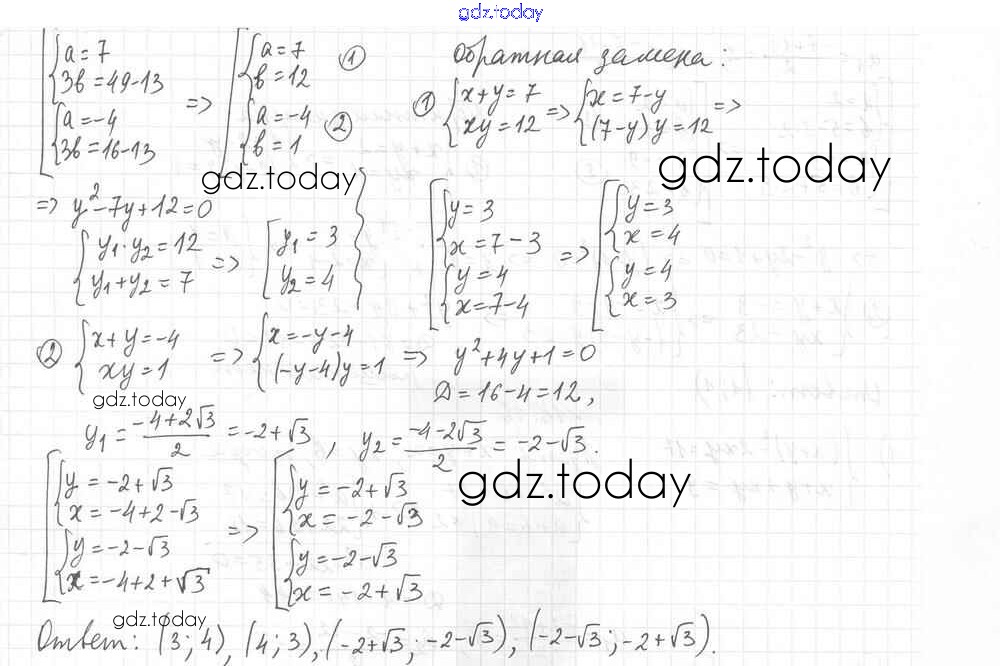 gdz.today
[{a = 7, 3b = 49 - 13; {a = -4, 3b = 16 - 13 => [{a = 7, b = 12 ①; {a = -4, b = 1 ②
Обратная замена:
① {x + y = 7, xy = 12 => {x = 7 - y, (7 - y)y = 12 =>
gdz.today
gdz.today
=> y² - 7y + 12 = 0
{y₁ · y₂ = 12, y₁ + y₂ = 7 => [y₁ = 3, y₂ = 4 }
[{y = 3, x = 7 - 3; {y = 4, x = 7 - 4 => [{y = 3, x = 4; {y = 4, x = 3
② {x + y = -4, xy = 1 => {x = -y - 4, (-y - 4)y = 1 => y² + 4y + 1 = 0
D = 16 - 4 = 12,
gdz.today
y₁ = (-4 + 2√3)/2 = -2 + √3, y₂ = (-4 - 2√3)/2 = -2 - √3.
gdz.today
[{y = -2 + √3, x = -4 + 2 - √3; {y = -2 - √3, x = -4 + 2 + √3 => [{y = -2 + √3, x = -2 - √3; {y = -2 - √3, x = -2 + √3
gdz.today
Ответ: (3; 4), (4; 3), (-2 + √3; -2 - √3), (-2 - √3; -2 + √3).